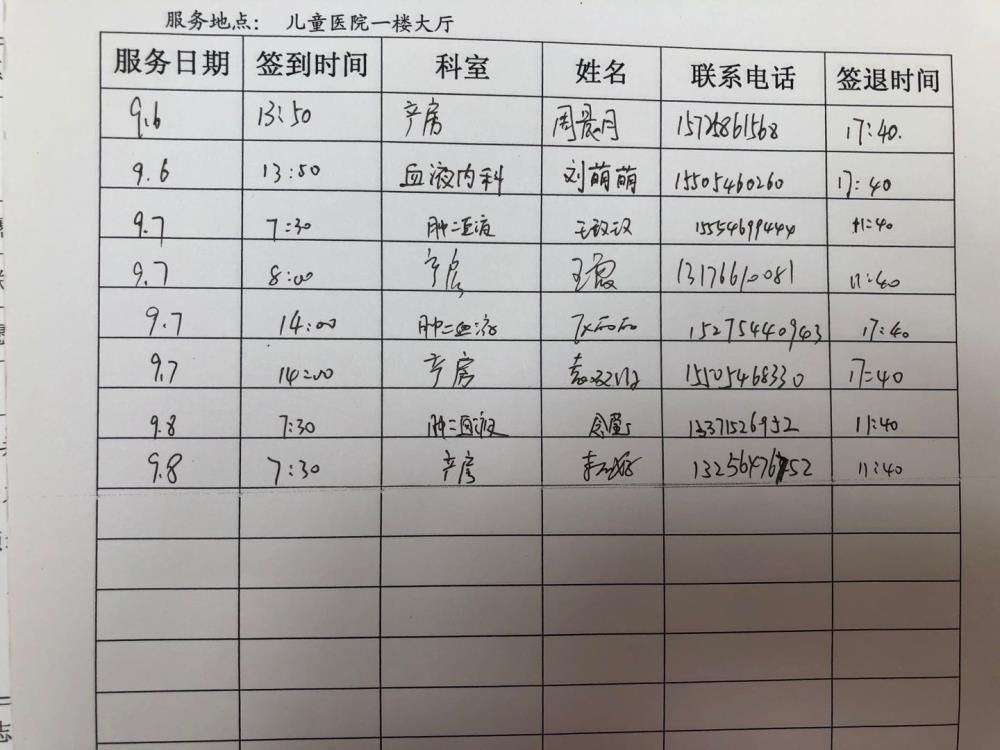 服务地点： 儿童医院一楼大厅
服务日期 签到时间 科室 姓名 联系电话 签退时间
9.6 13:50 产房 周晨月 15725861568 17:40.
9.6 13:50 血液内科 刘萌萌 15505460260 17:40
9.7 7:30 肿二血液 15554699444 11:40
9.7 8:00 产房 王霞 13176610081 11:40
9.7 14:00 肿二血液 15275440943 17:40
9.7 14:00 产房 15505468330 17:40
9.8 7:30 肿二血液 13371526952 11:40
9.8 7:30 产房 13256476752 11:40